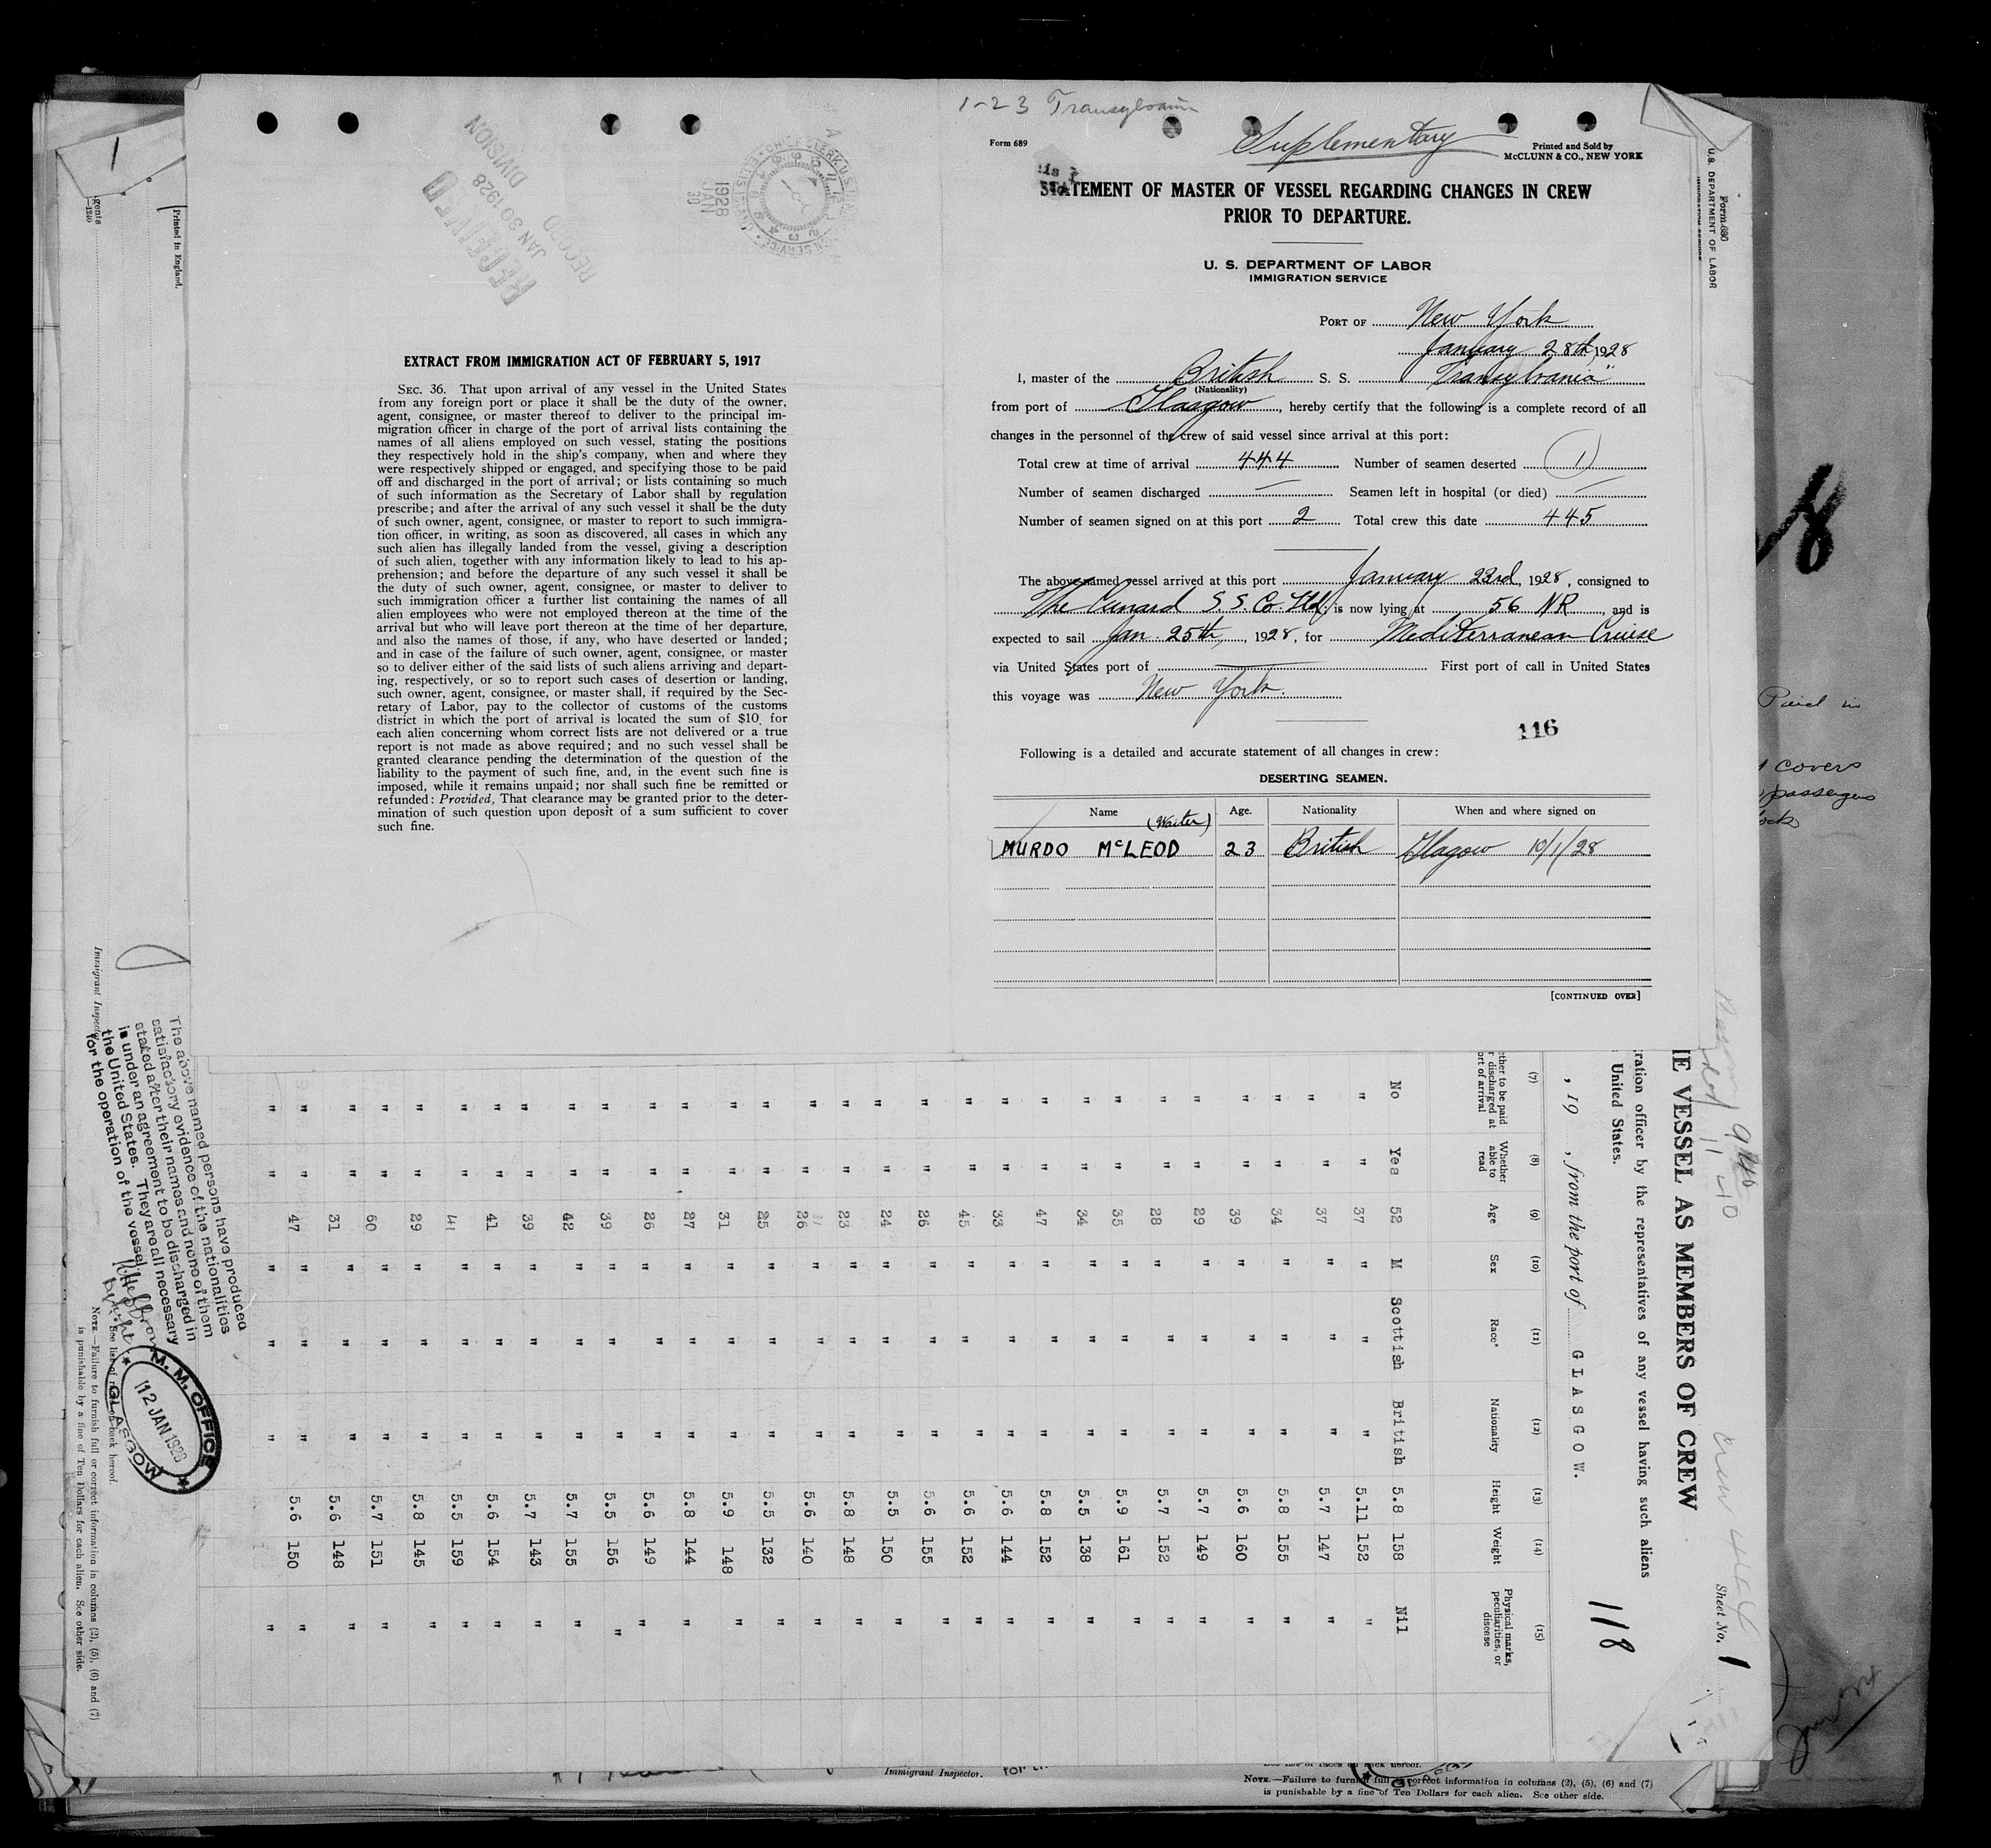 1-23 Transylvania
Form 689
Suplementary
Printed and Sold by
McCLUNN & CO., NEW YORK
STATEMENT OF MASTER OF VESSEL REGARDING CHANGES IN CREW
PRIOR TO DEPARTURE.
U. S. DEPARTMENT OF LABOR
IMMIGRATION SERVICE
PORT OF New York
January 28th, 1928
I, master of the British S. S. Transylvania"
(Nationality)
from port of Glasgow, hereby certify that the following is a complete record of all
changes in the personnel of the crew of said vessel since arrival at this port:
Total crew at time of arrival 444 Number of seamen deserted 1
Number of seamen discharged — Seamen left in hospital (or died) —
Number of seamen signed on at this port 2 Total crew this date 445
The above-named vessel arrived at this port January 23rd, 1928, consigned to
The Cunard S. S. Co. Ltd; is now lying at 56 NR, and is
expected to sail Jan. 25th, 1928, for Mediterranean Cruise
via United States port of — First port of call in United States
this voyage was New York.
116
Following is a detailed and accurate statement of all changes in crew:
DESERTING SEAMEN.
Name Age. Nationality When and where signed on
(Waiter)
MURDO McLEOD 23 British Glagow 10/1/28
[CONTINUED OVER]
RECEIVED
JAN 30 1928
RECORD
DIVISION
1928
JAN
30
EXTRACT FROM IMMIGRATION ACT OF FEBRUARY 5, 1917
SEC. 36. That upon arrival of any vessel in the United States
from any foreign port or place it shall be the duty of the owner,
agent, consignee, or master thereof to deliver to the principal im-
migration officer in charge of the port of arrival lists containing the
names of all aliens employed on such vessel, stating the positions
they respectively hold in the ship's company, when and where they
were respectively shipped or engaged, and specifying those to be paid
off and discharged in the port of arrival; or lists containing so much
of such information as the Secretary of Labor shall by regulation
prescribe; and after the arrival of any such vessel it shall be the duty
of such owner, agent, consignee, or master to report to such immigra-
tion officer, in writing, as soon as discovered, all cases in which any
such alien has illegally landed from the vessel, giving a description
of such alien, together with any information likely to lead to his ap-
prehension; and before the departure of any such vessel it shall be
the duty of such owner, agent, consignee, or master to deliver to
such immigration officer a further list containing the names of all
alien employees who were not employed thereon at the time of the
arrival but who will leave port thereon at the time of her departure,
and also the names of those, if any, who have deserted or landed;
and in case of the failure of such owner, agent, consignee, or master
so to deliver either of the said lists of such aliens arriving and depart-
ing, respectively, or so to report such cases of desertion or landing,
such owner, agent, consignee, or master shall, if required by the Sec-
retary of Labor, pay to the collector of customs of the customs
district in which the port of arrival is located the sum of $10 for
each alien concerning whom correct lists are not delivered or a true
report is not made as above required; and no such vessel shall be
granted clearance pending the determination of the question of the
liability to the payment of such fine, and, in the event such fine is
imposed, while it remains unpaid; nor shall such fine be remitted or
refunded: Provided, That clearance may be granted prior to the deter-
mination of such question upon deposit of a sum sufficient to cover
such fine.
Form 680
U. S. DEPARTMENT OF LABOR
Sheet No. 1
E VESSEL AS MEMBERS OF CREW
ration officer by the representatives of any vessel having such aliens
United States.
118
, 19 , from the port of GLASGOW.
(7) (8) (9) (10) (11) (12) (13) (14) (15)
Whether able to read Age Sex Race* Nationality Height Weight Physical marks, peculiarities, or disease
No Yes 52 M Scottish British 5.8 158 Nil
" " 37 " " " 5.11 152 "
" " 37 " " " 5.7 147 "
" " 34 " " " 5.8 155 "
" " 39 " " " 5.6 160 "
" " 29 " " " 5.7 149 "
" " 28 " " " 5.7 152 "
" " 35 " " " 5.9 161 "
" " 34 " " " 5.5 138 "
" " 47 " " " 5.8 152 "
" " 33 " " " 5.6 144 "
" " 45 " " " 5.6 152 "
" " 26 " " " 5.6 155 "
" " 24 " " " 5.5 150 "
" " 23 " " " 5.8 148 "
" " 26 " " " 5.6 140 "
" " 25 " " " 5.5 132 "
" " 31 " " " 5.9 148 "
" " 27 " " " 5.8 144 "
" " 26 " " " 5.6 149 "
" " 39 " " " 5.5 156 "
" " 42 " " " 5.7 155 "
" " 39 " " " 5.7 143 "
" " 41 " " " 5.6 154 "
" " 41 " " " 5.5 159 "
" " 29 " " " 5.8 145 "
" " 60 " " " 5.7 151 "
" " 31 " " " 5.6 148 "
" " 47 " " " 5.6 150 "
The above named persons have produced
satisfactory evidence of the nationalities
stated after their names and none of them
is under an agreement to be discharged in
the United States. They are all necessary
for the operation of the vessel.
Immigrant Inspector.
M. M. OFFICE
12 JAN 1928
GLASGOW
NOTE.—Failure to furnish full or correct information in columns (2), (5), (6) and (7)
is punishable by a fine of Ten Dollars for each alien. See other side.
Printed in England.
Paid in
covers
passengers
Immigrant Inspector.
NOTE.—Failure to furnish full or correct information in columns (2), (5), (6) and (7)
is punishable by a fine of Ten Dollars for each alien. See other side.